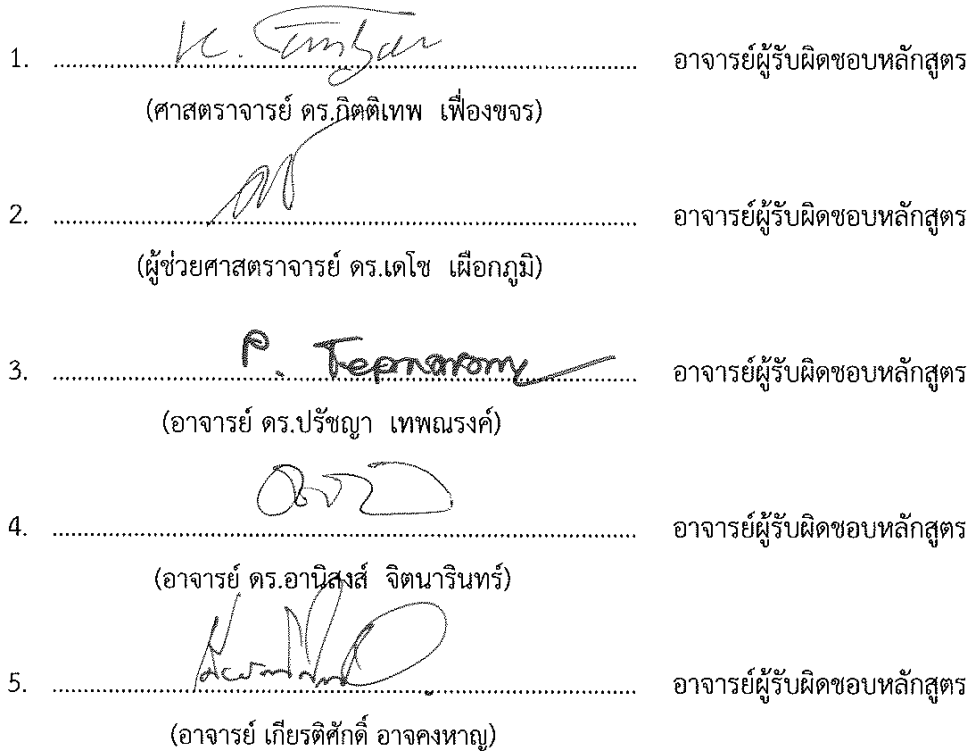 1. .......................................................................... อาจารย์ผู้รับผิดชอบหลักสูตร
(ศาสตราจารย์ ดร.กิตติเทพ เฟื่องขจร)
2. .......................................................................... อาจารย์ผู้รับผิดชอบหลักสูตร
(ผู้ช่วยศาสตราจารย์ ดร.เดโช เผือกภูมิ)
3. P. Tepnarong อาจารย์ผู้รับผิดชอบหลักสูตร
(อาจารย์ ดร.ปรัชญา เทพณรงค์)
4. .......................................................................... อาจารย์ผู้รับผิดชอบหลักสูตร
(อาจารย์ ดร.อานิสงส์ จิตนารินทร์)
5. .......................................................................... อาจารย์ผู้รับผิดชอบหลักสูตร
(อาจารย์ เกียรติศักดิ์ อาจคงหาญ)